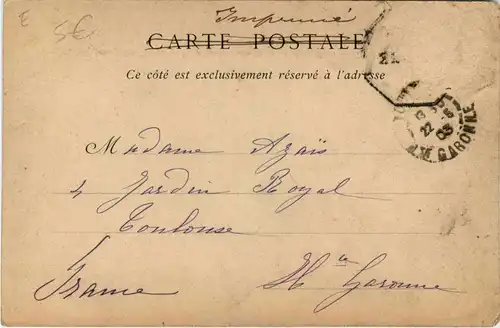 Imprimé
CARTE POSTALE
Ce côté est exclusivement réservé à l'adresse
Madame Azaïs
4 Jardin Royal
Toulouse
Hte Garonne
France
5€
E
22
03
GARONNE